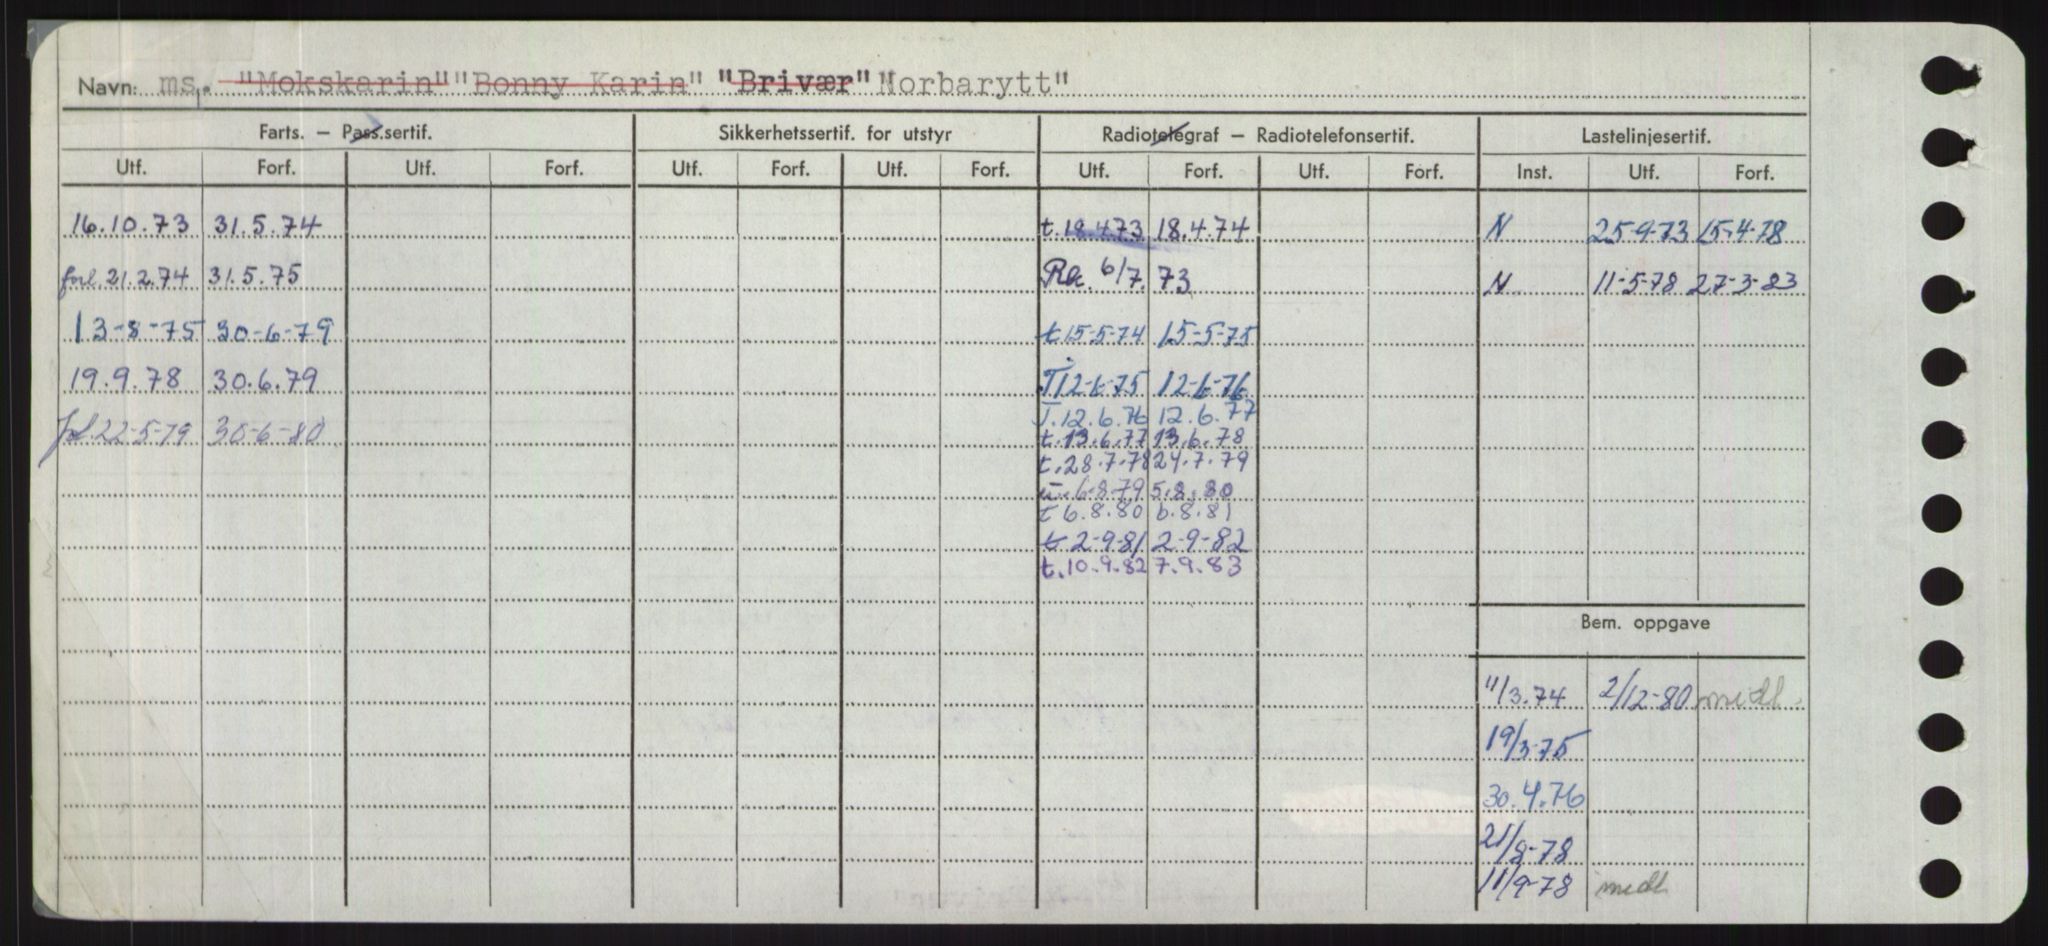 Navn: ms. "Mokskarin" "Bonny Karin" "Brivær" "Norbarytt"
Farts. – Pass.sertif. Sikkerhetssertif. for utstyr Radiotelegraf – Radiotelefonsertif. Lastelinjesertif.
Utf. Forf. Utf. Forf. Utf. Forf. Utf. Forf. Utf. Forf. Utf. Forf. Inst. Utf. Forf.
16.10.73 31.5.74 t.19.4.73 18.4.74 N 25-9-73 15-4-78
forl. 21.2.74 31.5.75 Ra. 6/7. 73 N 11-5-78 27-3-83
13-8-75 30-6-79 t 15-5-74 15-5-75
19.9.78 30.6.79 T 12-6-75 12-6-76
T. 12.6.76 12.6.77
forl. 22-5-79 30-6-80 t. 13.6.77 13.6.78
t. 28.7.78 24.7.79
t. 6.8.79 5.8.80
t 6.8.80 6.8.81
t 2-9-81 2-9-82
t. 10.9.82 7.9.83
Bem. oppgave
11/3.74 2/12-80 midl.
19/3-75
30.4.76
21/8-78
11/9-78 midl